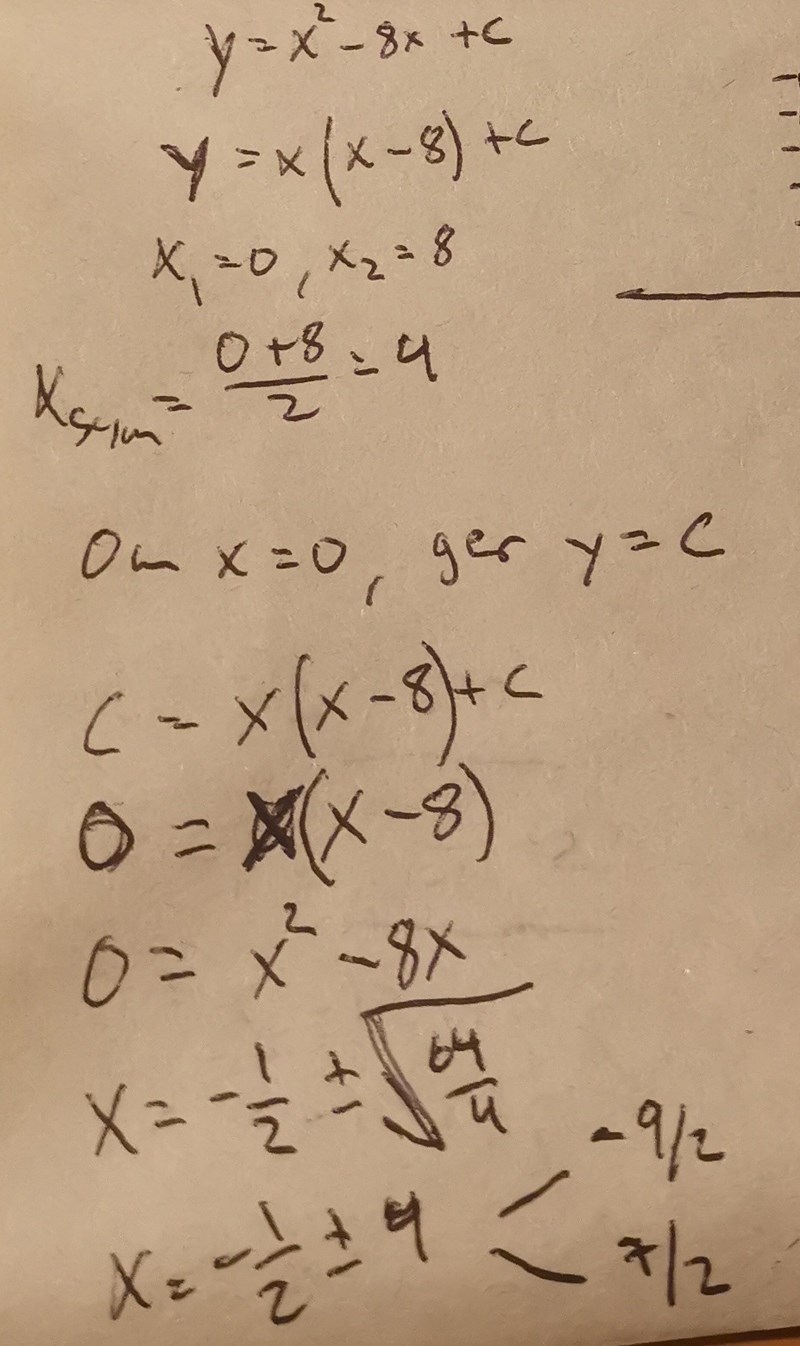 y = x² - 8x + c
y = x(x - 8) + c
x₁ = 0, x₂ = 8
x_sym = (0 + 8)/2 = 4
Om x = 0, ger y = c
c = x(x - 8) + c
0 = x(x - 8)
0 = x² - 8x
x = -1/2 ± √(64/4)
x = -1/2 ± 4 < -9/2
7/2